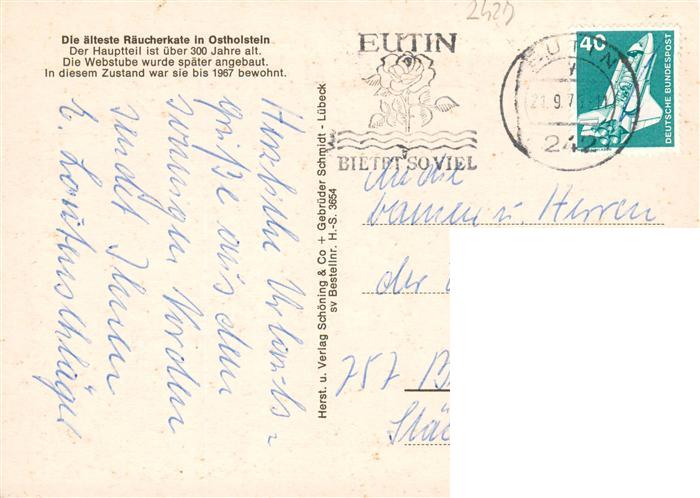 Die älteste Räucherkate in Ostholstein
Der Hauptteil ist über 300 Jahre alt.
Die Webstube wurde später angebaut.
In diesem Zustand war sie bis 1967 bewohnt.
Herzliche Urlaubs-
grüße aus dem
sonnigen Norden
sendet Ihnen
E. Lautenschläger
Herst. u. Verlag Schöning & Co + Gebrüder Schmidt - Lübeck
sv Bestellnr. H.-S. 3654
2420
EUTIN
BIETET SO VIEL
EUTIN
21.9.7
242
40
DEUTSCHE BUNDESPOST
An die
Damen u. Herren
der
757 B
Stä